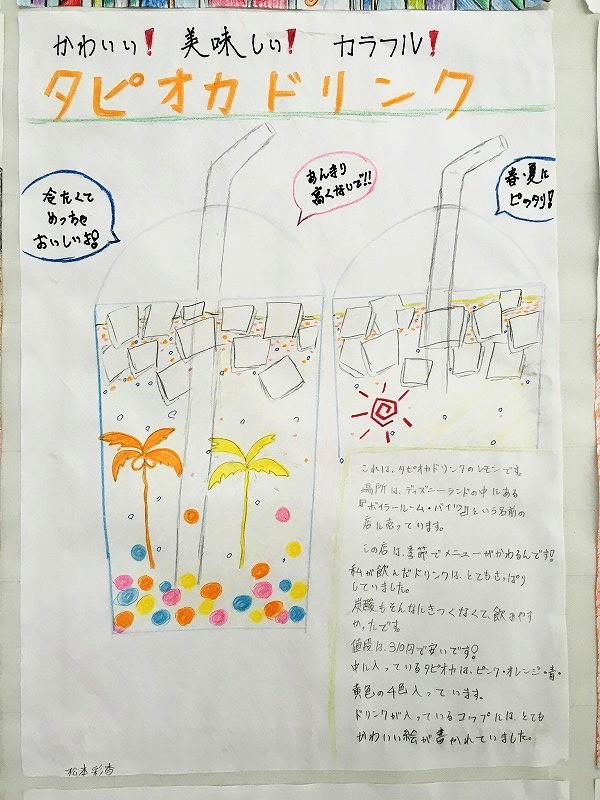 かわいい! 美味しい! カラフル!
タピオカドリンク
冷たくて
めっちゃ
おいしいよ!
あんまり
高くないで!!
春・夏に
ピッタリ!
これは、タピオカドリンクのレモンです。
場所は、ディズニーランドの中にある
『ボイラールーム・バイツ』という名前の
店に売っています。
この店は、季節でメニューがかわるんです!
私が飲んだドリンクは、とてもさっぱり
していました。
炭酸もそんなにきつくなくて、飲みやす
かったです。
値段は、310円で安いです!
中に入っているタピオカは、ピンク・オレンジ・青・
黄色の4色入っています。
ドリンクが入っているコップルは、とても
かわいい絵が書かれていました。
松本彩杏